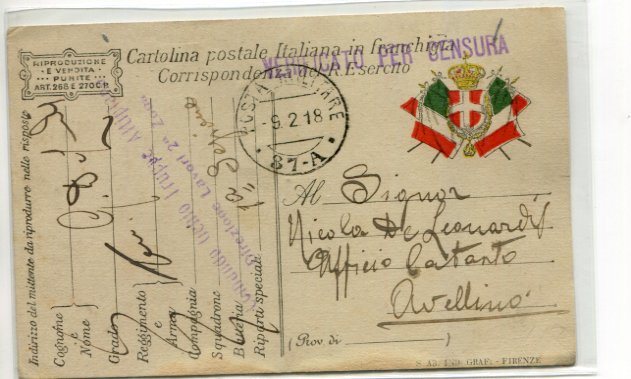 RIPRODUZIONE
E VENDITA
PUNITE
ART. 268 E 270 C.P.
Cartolina postale Italiana in franchigia
Corrispondenza del R. Esercito
VERIFICATO PER CENSURA
POSTA MILITARE
-9.2.18
87-A
Al Signor
Nicola De Leonardis
Ufficio Catasto
Avellino
(Prov. di )
Indirizzo del mittente da riprodurre nelle risposte
Cognome
e
Nome
Grado
Reggimento
e
Arma
Compagnia
Squadrone
Batteria
Riparti speciali
Genio Truppe Altipiani
Direzione Lavori 2a Zona
GRAF. - FIRENZE